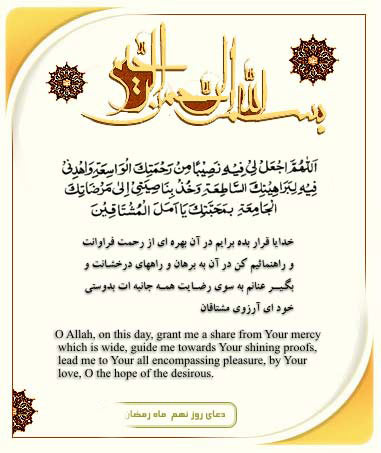 بسم الله الرحمن الرحیم
اَللّهُمَّ اجْعَلْ لي فيهِ نَصيبًا مِنْ رَحْمَتِكَ الْواسِعَةِ وَاهْدِني
فيهِ لِبَراهينِكَ السّاطِعَةِ وَخُذْ بِناصِيَتي اِلى مَرْضاتِكَ
الْجامِعَةِ بِمَحَبَّتِكَ يا اَمَلَ الْمُشْتاقينَ
خدایا قرار بده برایم در آن بهره ای از رحمت فراوانت
و راهنمائیم کن در آن به برهان و راههای درخشانت و
بگیر عنانم به سوی رضایت همه جانبه ات بدوستی
خود ای آرزوی مشتاقان
O Allah, on this day, grant me a share from Your mercy
which is wide, guide me towards Your shining proofs,
lead me to Your all encompassing pleasure, by Your
love, O the hope of the desirous.
دعای روز نهم ماه رمضان